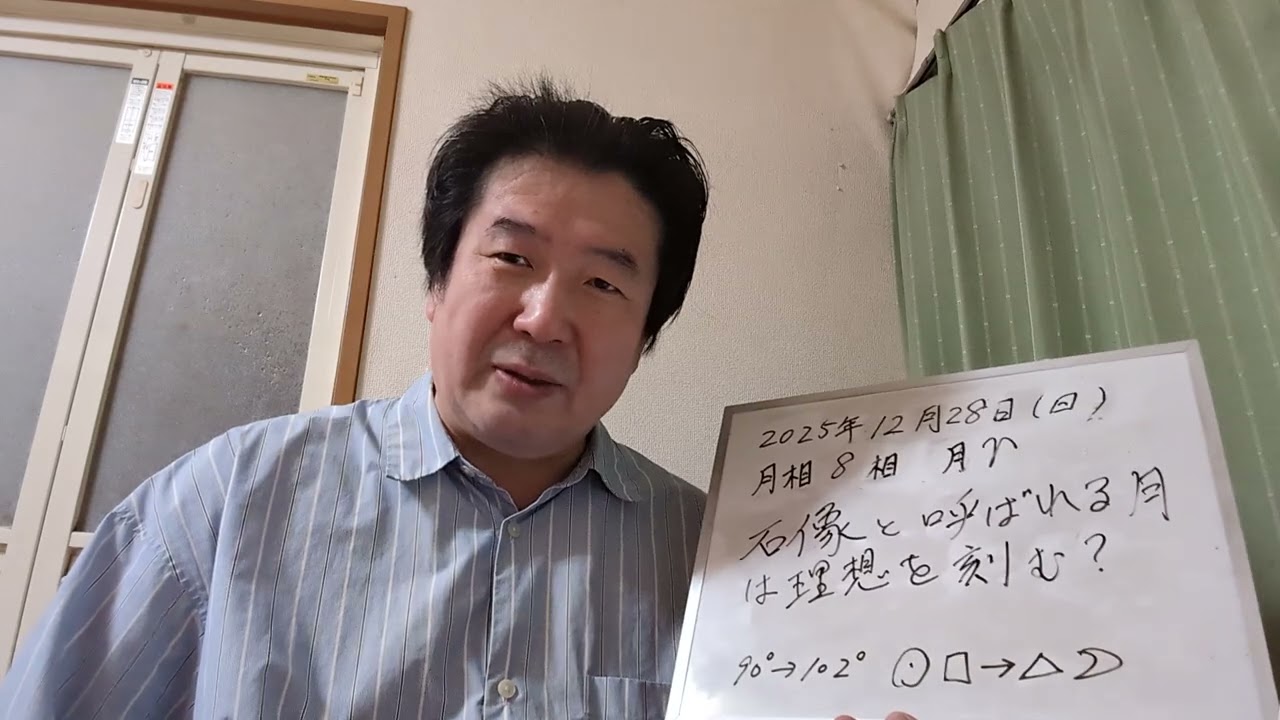 2025年12月28日(日)
月相8相 月♈
石像と呼ばれる月
は理想を刻む?
90°→102° ☉□→△☽